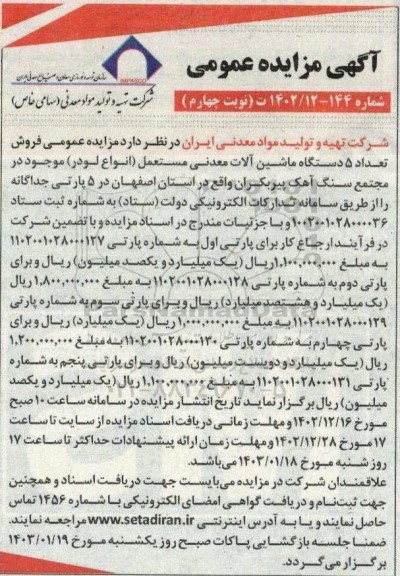 سازمان توسعه و نوسازی معادن و صنایع معدنی ایران
IMPASCO
شرکت تهیه و تولید مواد معدنی (سهامی خاص)
آگهی مزایده عمومی
شماره ۱۴۴-۱۴۰۲/۱۲ ت (نوبت چهارم)
شرکت تهیه و تولید مواد معدنی ایران در نظر دارد مزایده عمومی فروش
تعداد ۵ دستگاه ماشین آلات معدنی مستعمل (انواع لودر) موجود در
مجتمع سنگ آهک پیربکران واقع در استان اصفهان در ۵ پارتی جداگانه
را از طریق سامانه تدارکات الکترونیکی دولت (ستاد) به شماره ثبت ستاد
۱۰۰۲۰۰۱۰۲۸۰۰۰۰۳۶ و با جزئیات مندرج در اسناد مزایده و با تضمین شرکت
در فرآیند ارجاع کار برای پارتی اول به شماره پارتی ۱۱۰۲۰۰۱۰۲۸۰۰۰۱۲۷
به مبلغ ۱,۱۰۰,۰۰۰,۰۰۰ ریال (یک میلیارد و یکصد میلیون) ریال و برای
پارتی دوم به شماره پارتی ۱۱۰۲۰۰۱۰۲۸۰۰۰۱۲۸ به مبلغ ۱,۸۰۰,۰۰۰,۰۰۰ ریال
(یک میلیارد و هشتصد میلیارد) ریال و برای پارتی سوم به شماره پارتی
۱۱۰۲۰۰۱۰۲۸۰۰۰۱۲۹ به مبلغ ۱,۰۰۰,۰۰۰,۰۰۰ ریال (یک میلیارد) ریال و برای
پارتی چهارم به شماره پارتی ۱۱۰۲۰۰۱۰۲۸۰۰۰۱۳۰ به مبلغ ۱,۲۰۰,۰۰۰,۰۰۰
ریال (یک میلیارد و دویست میلیون) ریال و برای پارتی پنجم به شماره
پارتی ۱۱۰۲۰۰۱۰۲۸۰۰۰۱۳۱ به مبلغ ۱,۱۰۰,۰۰۰,۰۰۰ ریال (یک میلیارد و یکصد
میلیون) ریال برگزار نماید تاریخ انتشار مزایده در سامانه ساعت ۱۰ صبح
مورخ ۱۴۰۲/۱۲/۱۶ و مهلت زمانی دریافت اسناد مزایده از سایت تا ساعت
۱۷ مورخ ۱۴۰۲/۱۲/۲۸ و مهلت زمان ارائه پیشنهادات حداکثر تا ساعت ۱۷
روز شنبه مورخ ۱۴۰۳/۰۱/۱۸ می‌باشد.
علاقمندان شرکت در مزایده می‌بایست جهت دریافت اسناد و همچنین
جهت ثبت‌نام و دریافت گواهی امضای الکترونیکی با شماره ۱۴۵۶ تماس
حاصل نمایند و یا به آدرس اینترنتی www.setadiran.ir مراجعه نمایند.
ضمنا جلسه بازگشایی پاکات صبح روز یکشنبه مورخ ۱۴۰۳/۰۱/۱۹
برگزار می‌گردد.